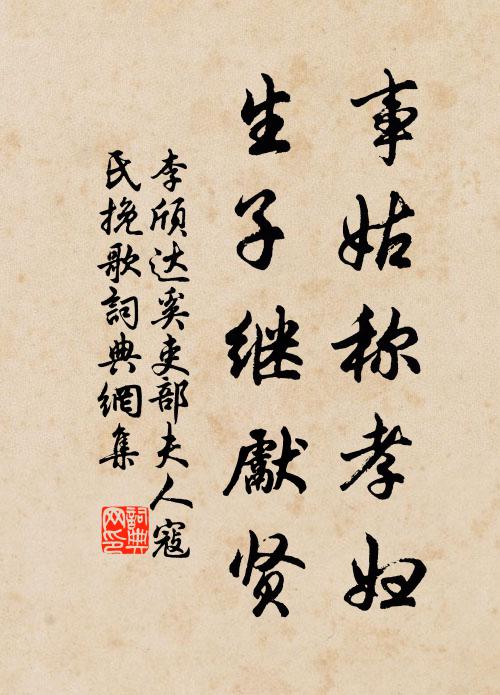 事姑称孝妇
生子继獻贤
李颀达奚吏部夫人寇
氏挽歌詞典網集
詞典
网印